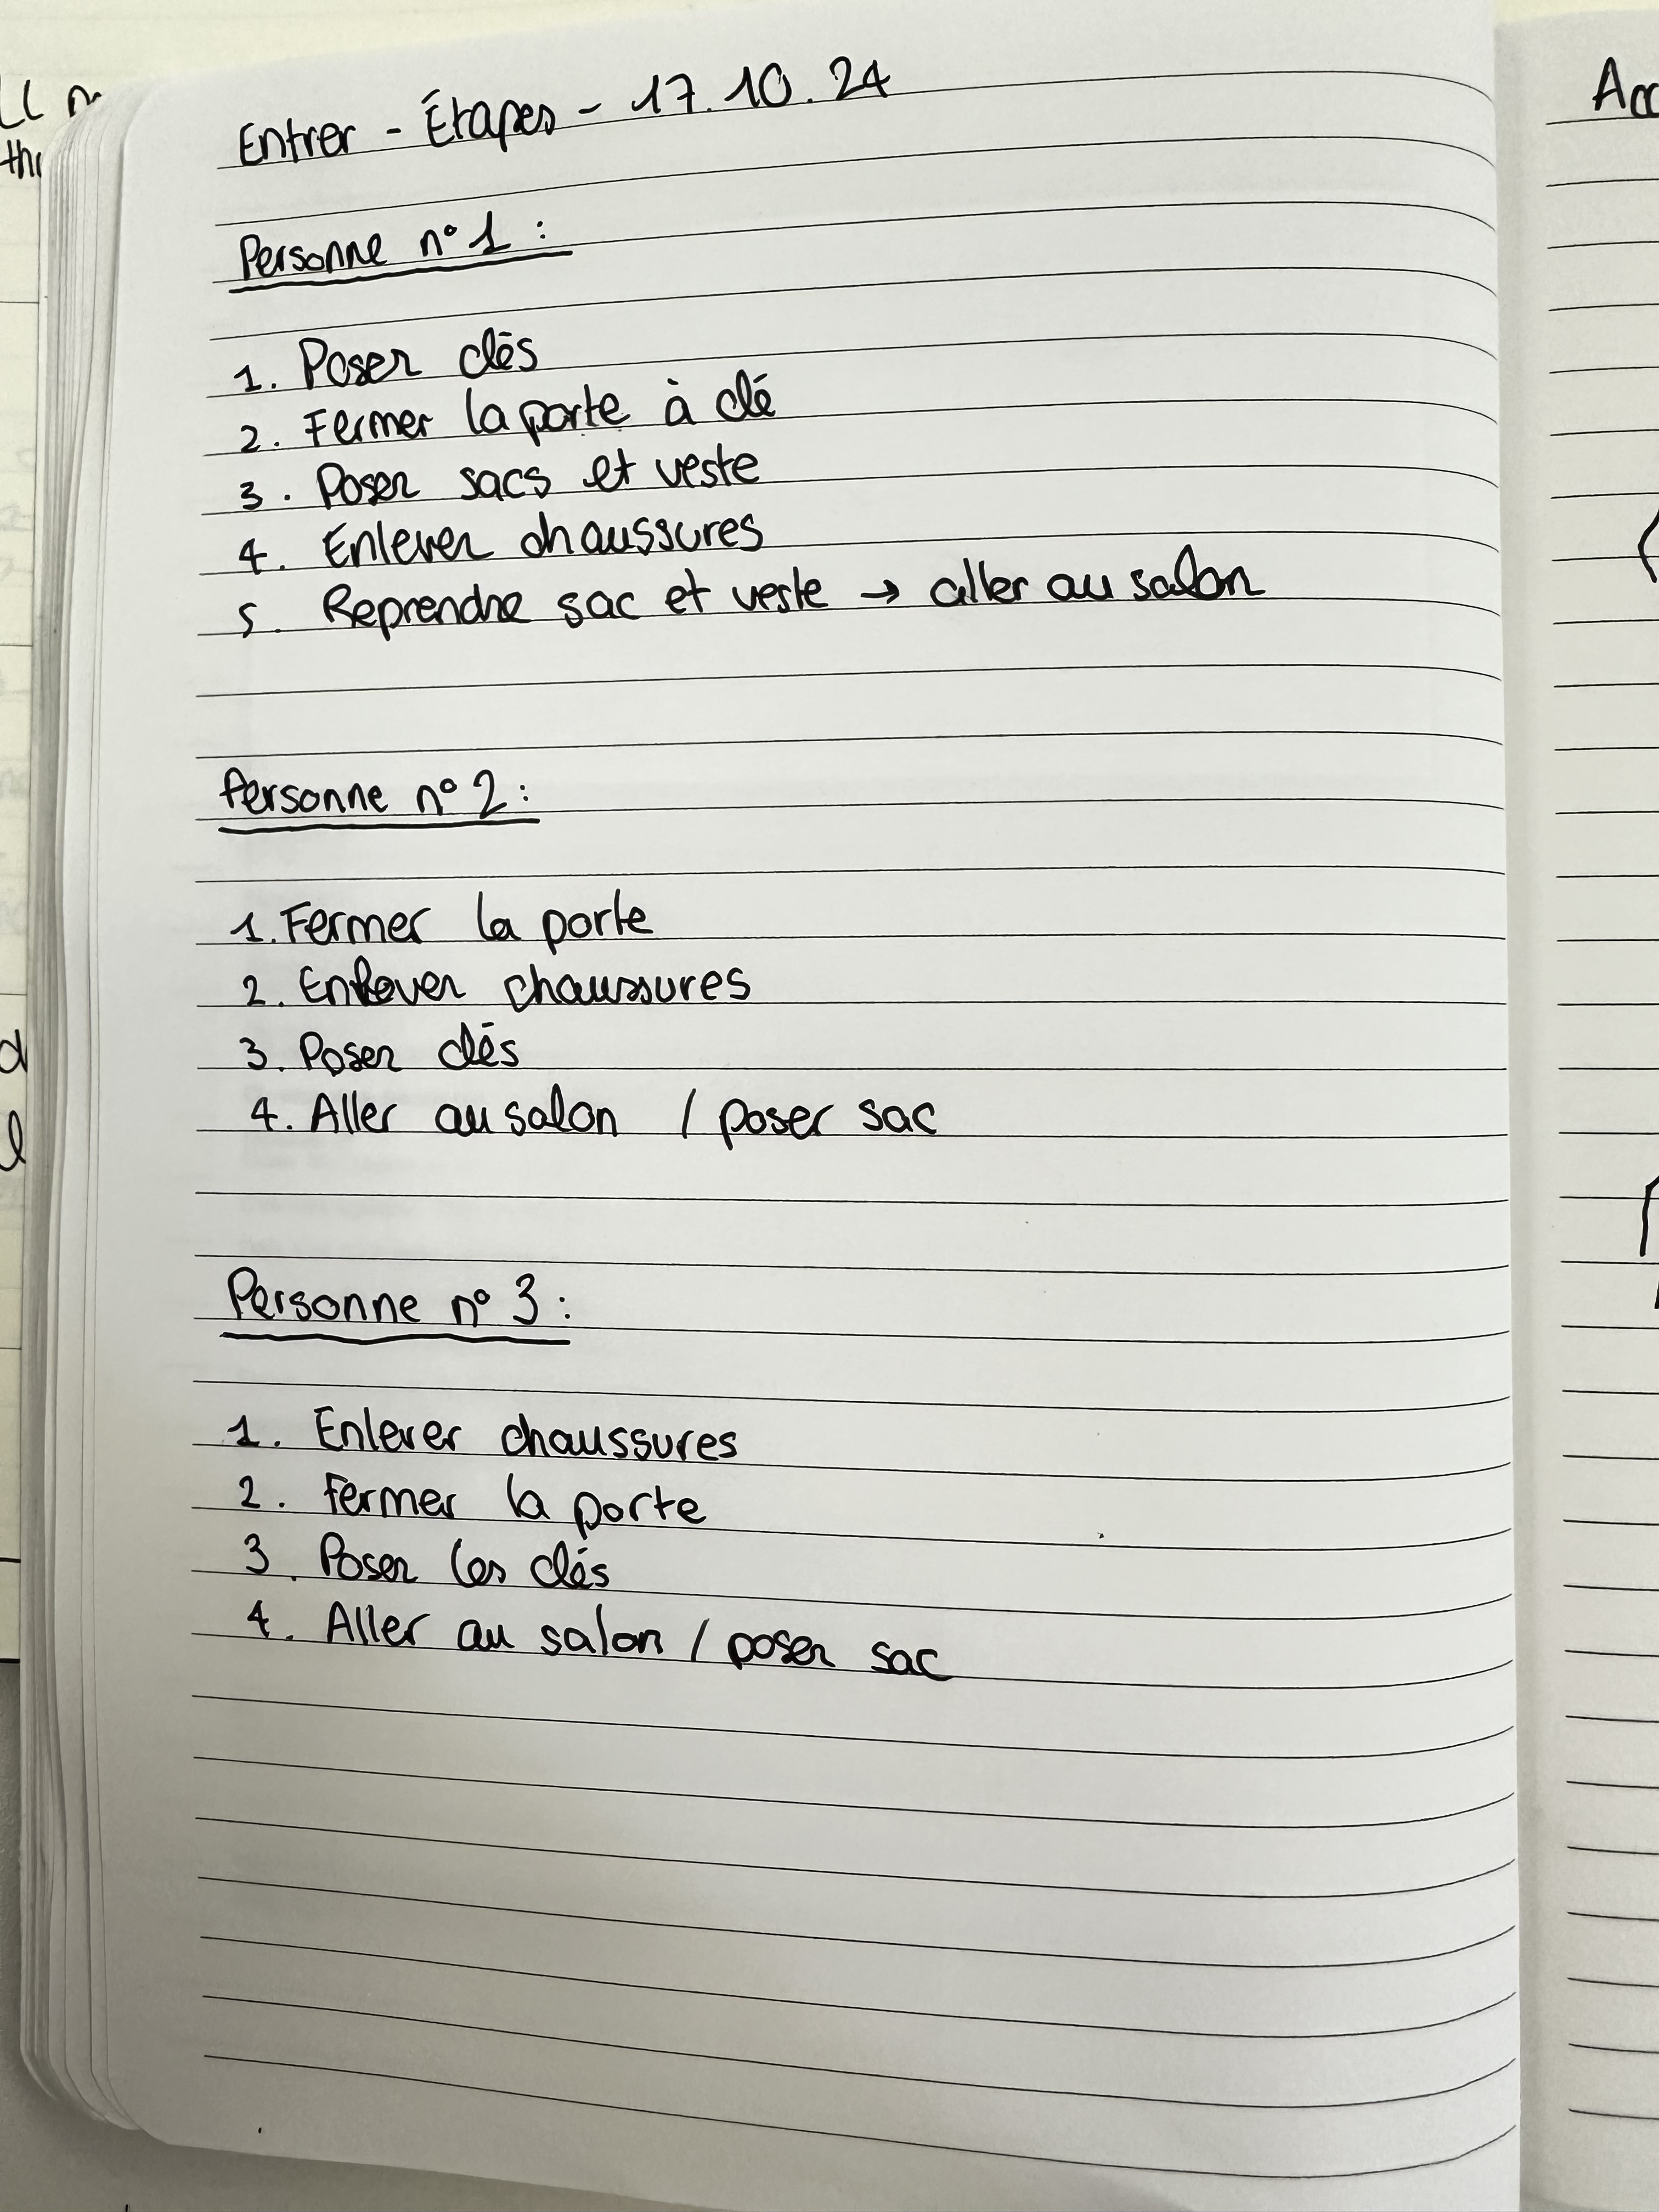 Entrer - Étapes - 17.10.24
Personne n° 1 :
1. Poser clés
2. Fermer la porte à clé
3. Poser sacs et veste
4. Enlever chaussures
5. Reprendre sac et veste → aller au salon
Personne n° 2 :
1. Fermer la porte
2. Enlever chaussures
3. Poser clés
4. Aller au salon / poser sac
Personne n° 3 :
1. Enlever chaussures
2. Fermer la porte
3. Poser les clés
4. Aller au salon / poser sac